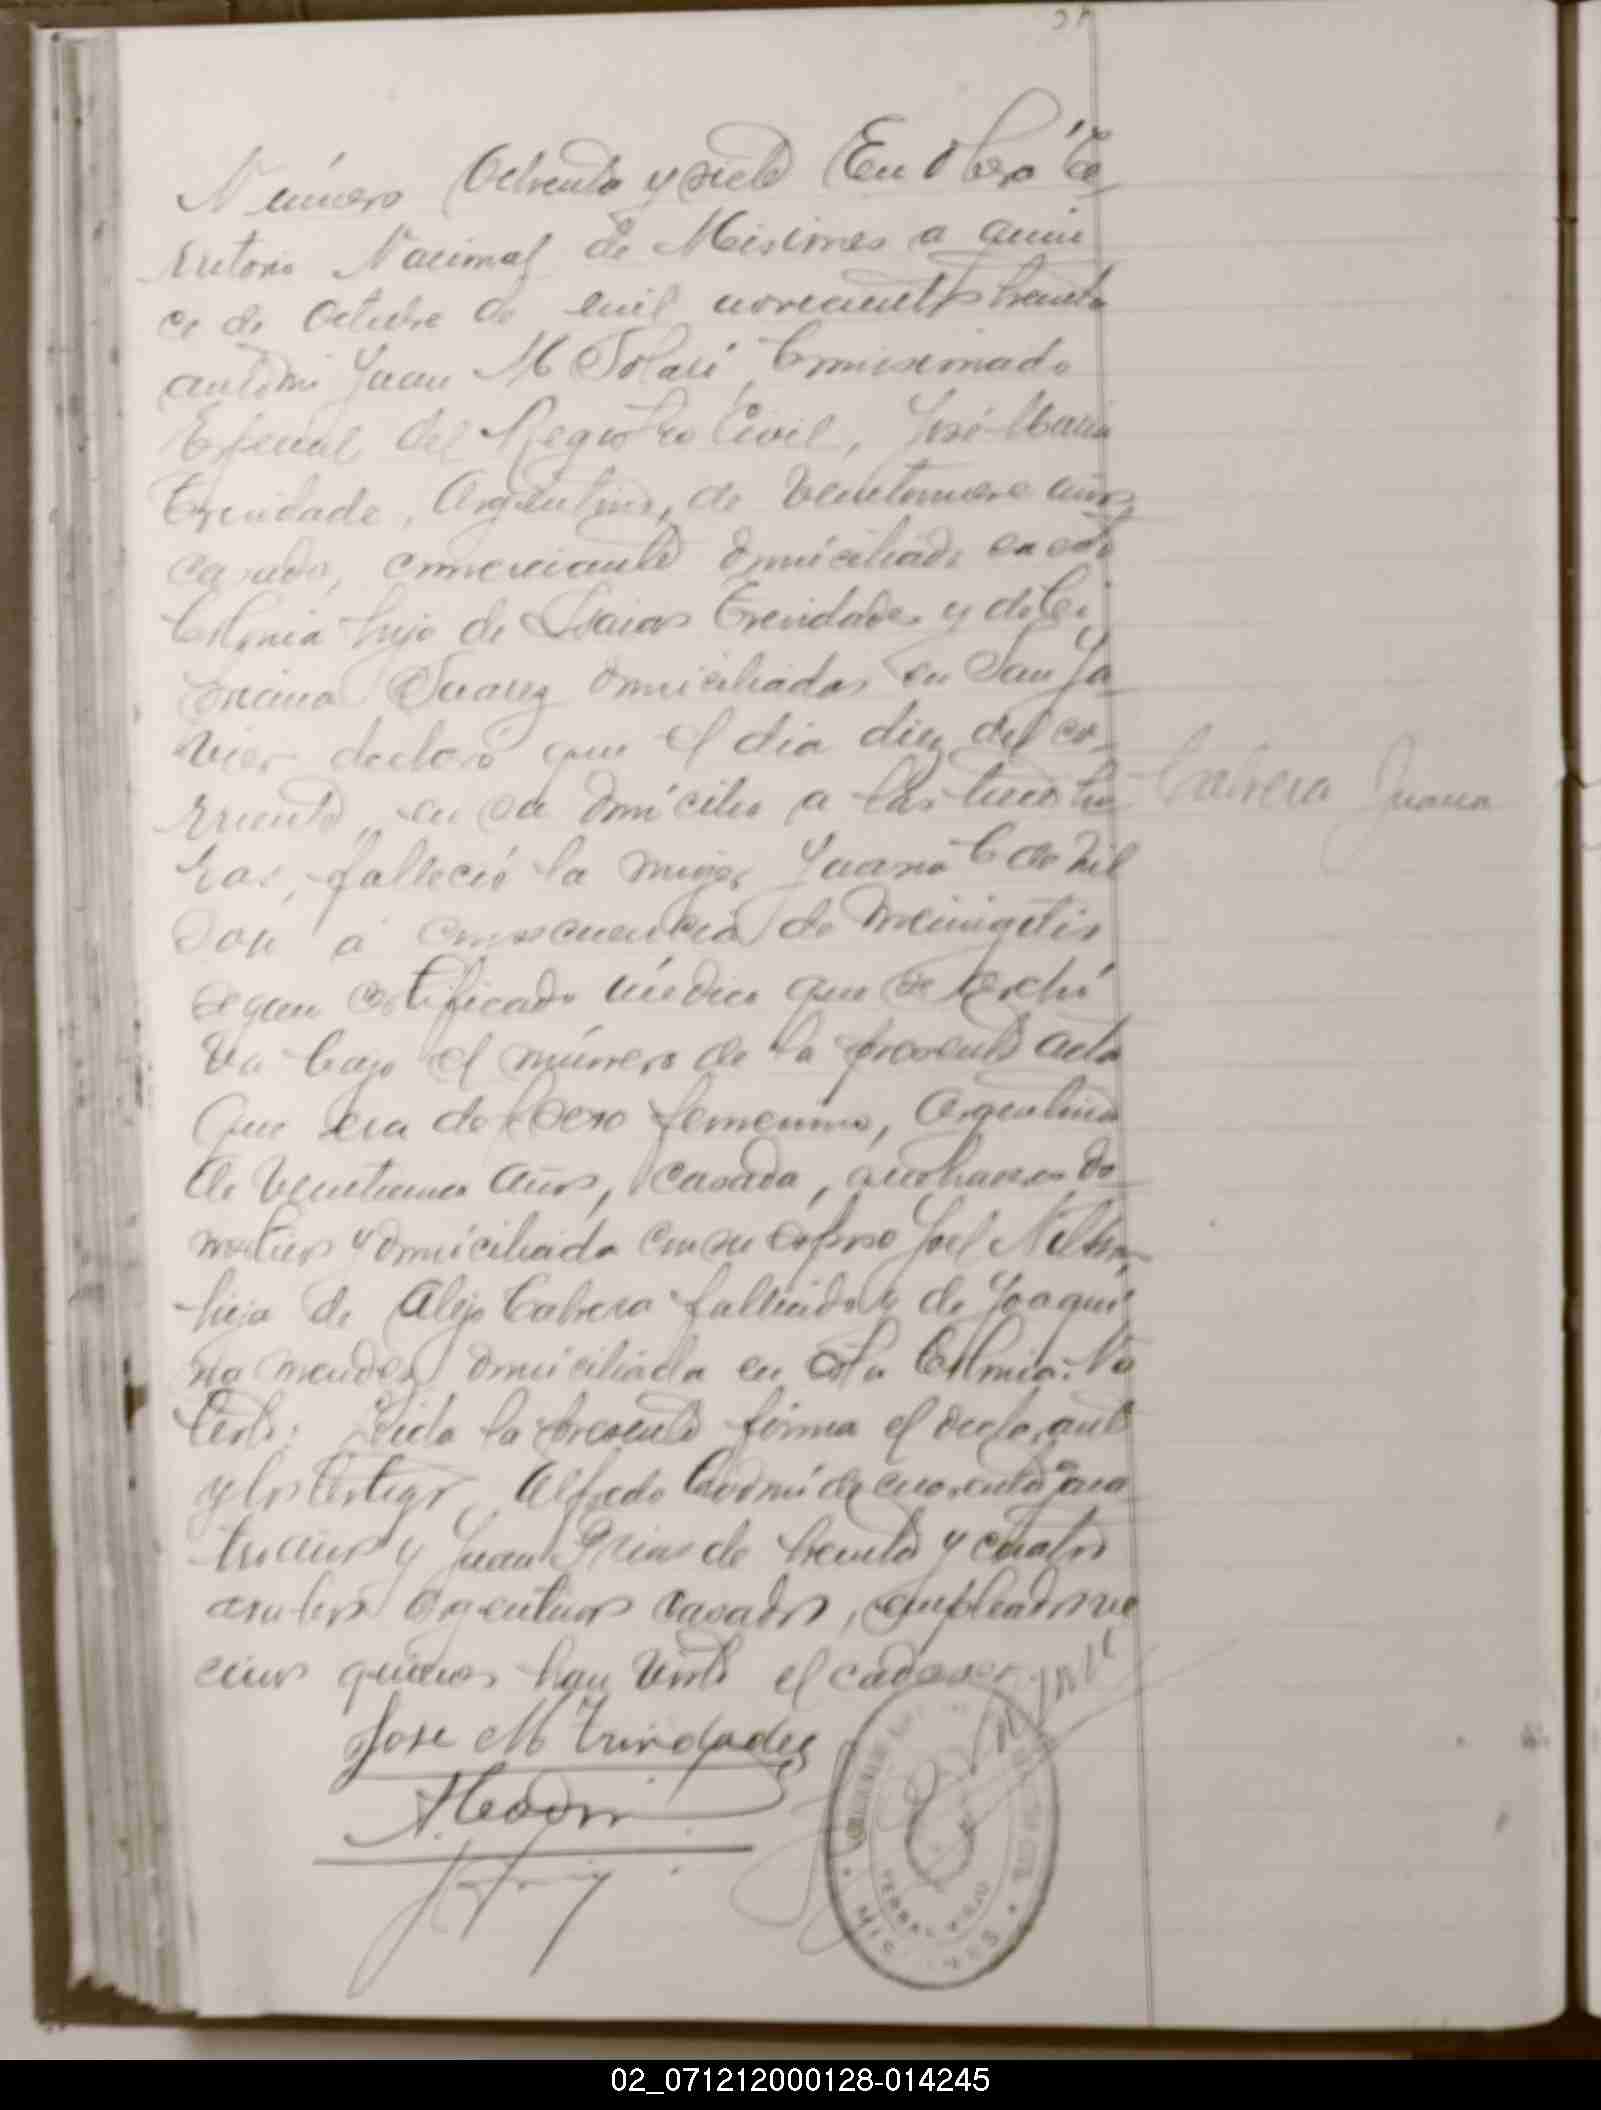 Número Ochenta y siete En Oberá Te
rritorio Nacional de Misiones a quin
ce de Octubre de mil novecientos treinta
ante mi Juan M Solari, Comisionado
Especial del Registro Civil, José Maria
Trindade, Argentino, de veintinueve años
casado, comerciante domiciliado en esta
Colonia hijo de Isaias Trindades y de
Suarez domiciliados en San Ja
vier declaró que el dia diez del co-
rriente, en su domicilio a las ho
ras, falleció la mujer Juana C de Nil
son a consecuencia de meningitis
segun certificado médico que se archi
va bajo el número de la presente acta
Que era del sexo femenino, Argentina
de veintiun años, casada, quehaceres do
mesticos y domiciliada con su esposo Joel Nilson,
hija de Alejo Cabrera fallecido y de Joaqui
na Mendez domiciliada en esta Colonia. No
testó: Leida la presente firma el declarante
y los testigos Alfredo de cuarenta y cua
tro años y Juan Frias de treinta y cuatro
ambos argentinos casados, empleados ve
cinos quienes han visto el cadaver
Cabrera Juana
Jose M Trindades
YERBAL VIEJO
MISIONES
02_071212000128-014245